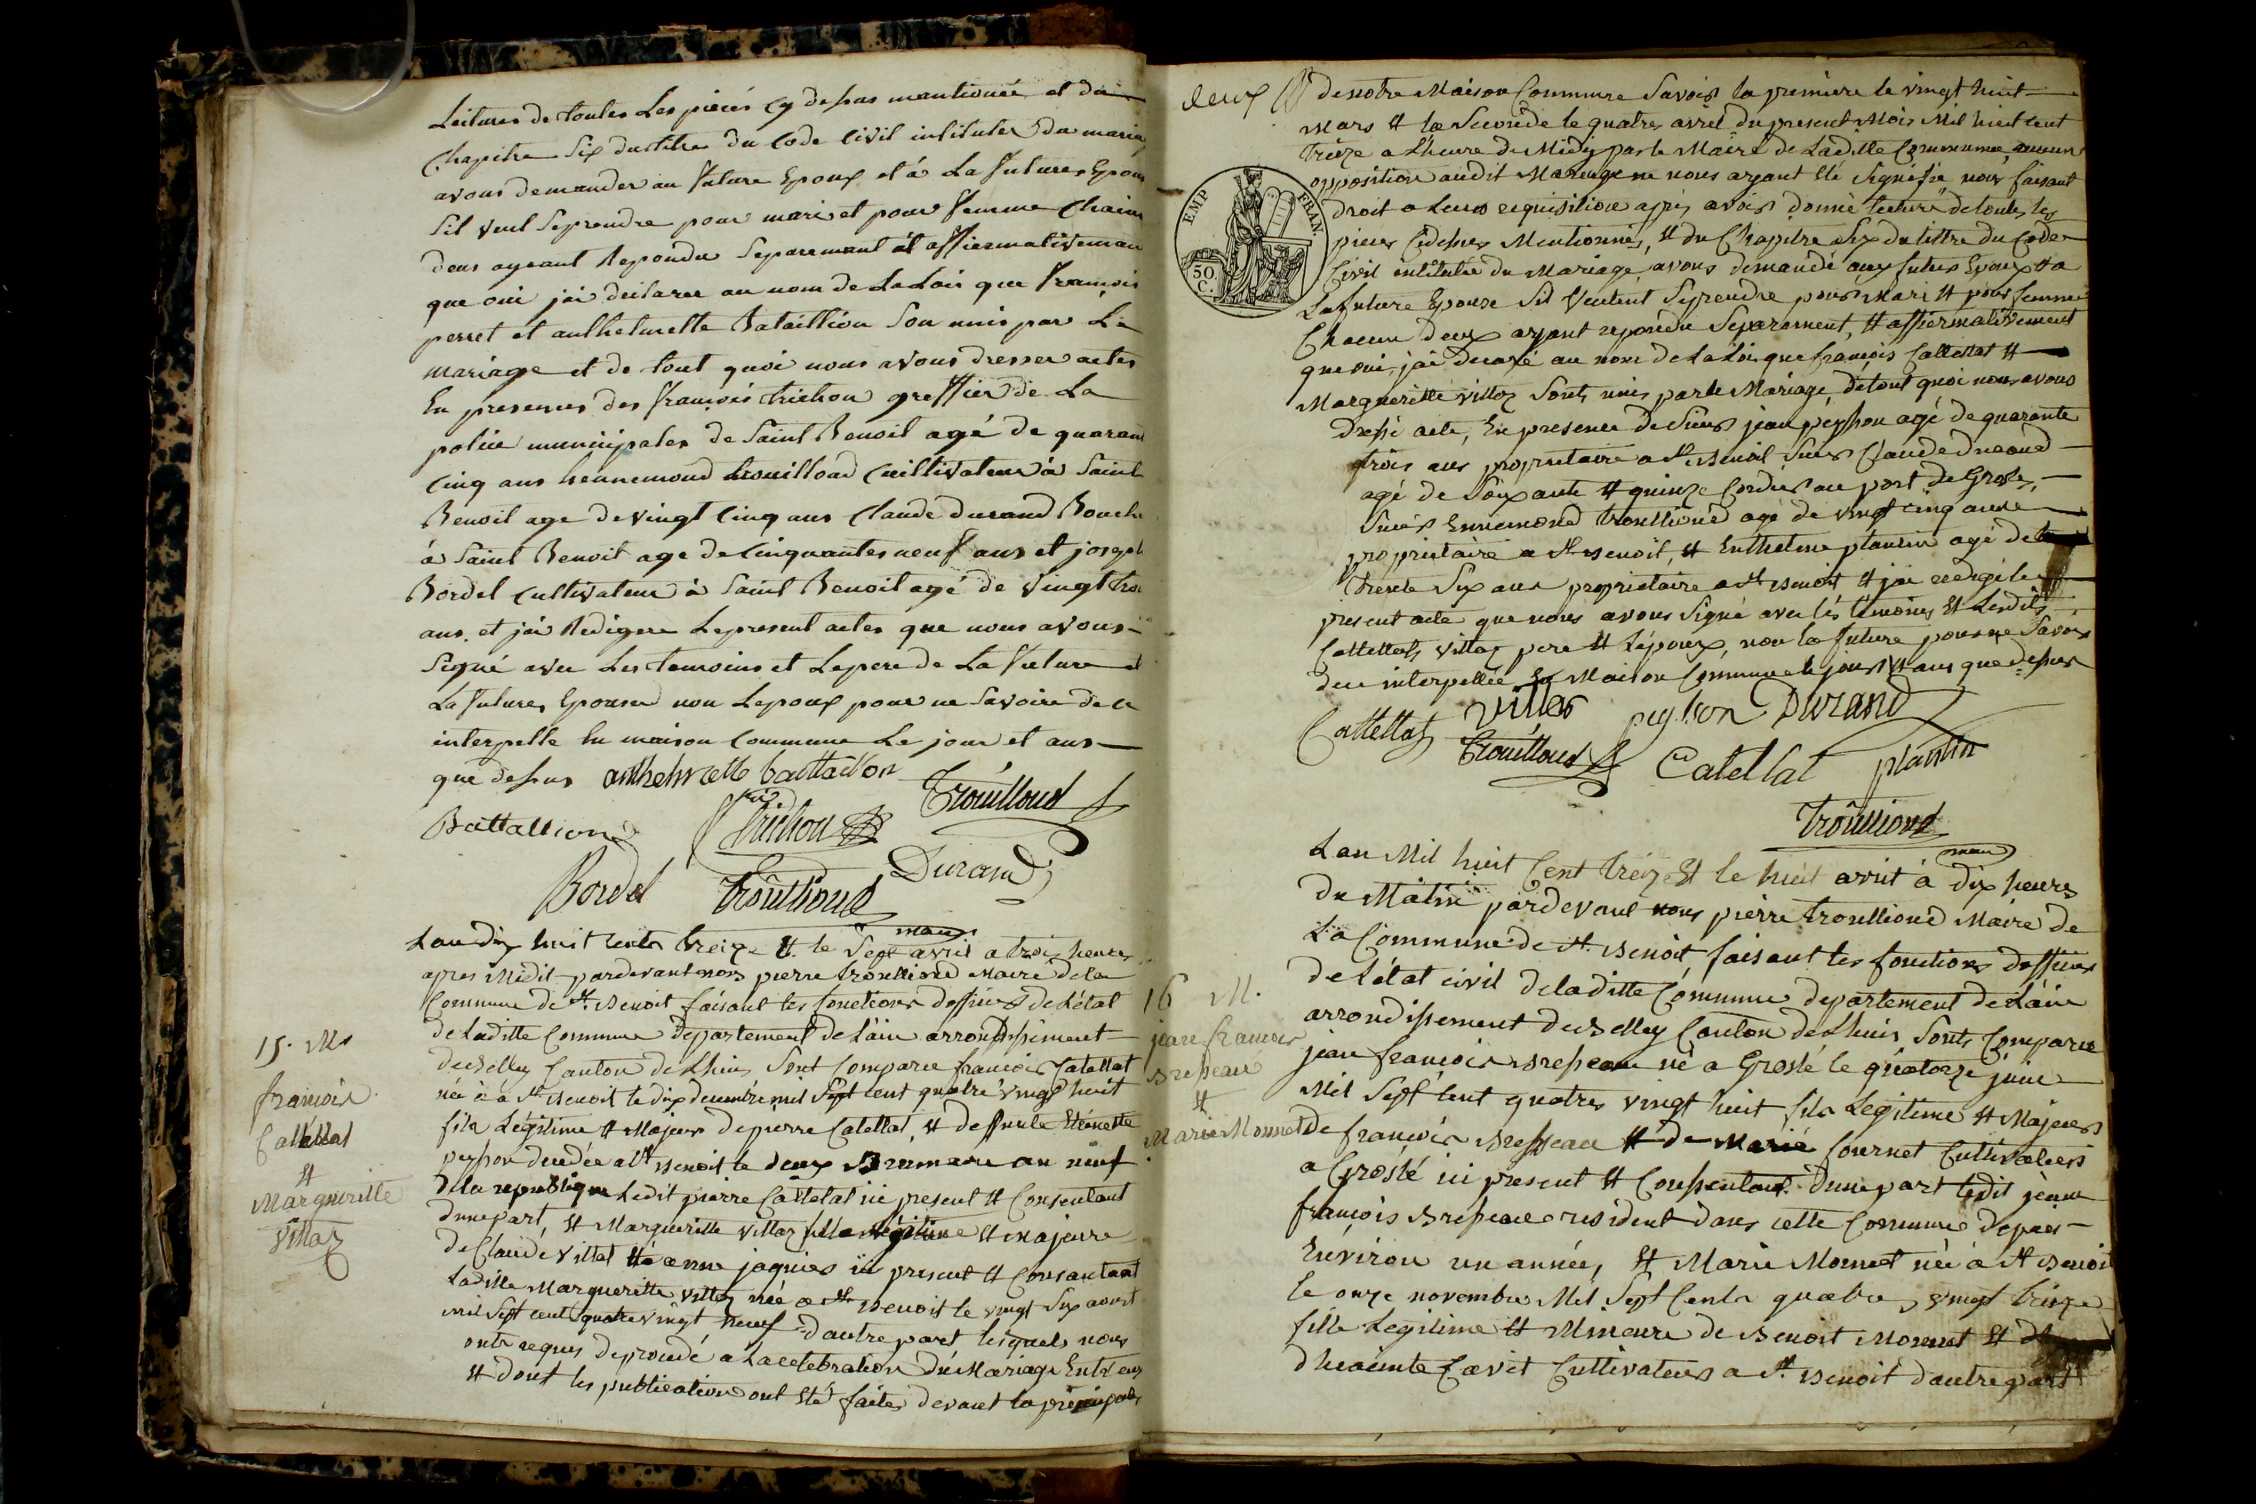 Leitures de toutes Les pieces Cy dessus mantionnée et du
Chapitre Six du titre du Code Civil intitules du maria
avons demander au future Epoux et à La future Epous
Sil veul Seprendre pour mari et pour femme Chain
deux ayeant Repondu Separemant et affiermativeman
que oui jai declaree au nom de La Loi que françois
perret et anthelmette Bataillion Son unis par Le
mariage et de tout quoi nous avons dresser actes
En presences des françois trichon greffier de La
police municipales de Saint Benoit agé de quarant
Cinq ans hennemond trouilloud Cuiltivateur à Saint
Benoit age de vingt Cinq ans Claude durand Bouche
à Saint Benoit age de Cinquantes neuf ans et joseph
Bordel Cultivateur à Saint Benoit agé de vingt troi
ans et jai Redigere Lepresent actes que nous avons
Signé avec Les temoins et Lepere de La future et
La future Epouse non Lepoux pour ne Savoire de ce
interpelle En maison Commune Le jour et ans
que dessus anthelmette battallion
Battallion trichon Trouilloud
Bordel Trouilloud Durand
Lan dix huit cents treize Et le Sept avril a trois heures
apres Midit pardevant nous pierre trouilloud Maire de la
Commune de St Benoit faisant les fonctions dofficier de Létat
de Laditte Commune departement de Lain arrondissement
de Belley Canton de Lhuis Sont Comparu françois Catellat
né à St Benoit le dix decembre mil Sept cent quatre vingt huit
fils Légitime Et Majeur de pierre Catellat, Et deffunte Etiennette
peysson decedée a St Benoit le deux Brumaire an neuf
de la republique Ledit pierre Cattelat ici present Et Consentant
dune part, Et Margueritte Villoz fille légitime Et majeure
de Claude Villot Et anne jaquier ici present Et Consantant
Laditte Marguerritte Villoz née a St Benoit le vingt Six aoust
mil Sept cent quatre vingt neuf dautre part lesquels nous
onts requis de procedé a La celebration du Mariage Entr eux
Et dont les publications ont Eté faites devant la principale
15. Me
françois
Catellat
Et
Marguerite
Villoz
deux
de notre Maison Commune Savoir la premiere le vingt huit
Mars Et la Seconde le quatres avril du present Mois Mil huit cent
treize a Lheure de Midy par le Maire de Laditte Commune, aucune
opposition audit Mariage ne nous ayant Eté Signifié nous faisant
droit a Leurs requisition après avoir donné lecture de toutes les
pieces Cidessus Mentionnés, Et du Chapitre Six du tittre du Code
Civil intitulée du Mariage avons demandé aux futurs Epoux Et a
La future Epouse Sil Veulent Seprendre pour Mari Et pour femme
Chacun deux ayant repondu Separement, Et affiermativement
que oui, jai declaré au nom de La Loi que françois Catellat Et
Margueritte Villoz Sonts unis par le Mariage, de tout quoi nous avons
Dressé acte, En presence de Sieurs jean peysson agé de quarante
trois ans proprietaire a St Benoit Sieur Claude Durand
agé de Soixante Et quinze Cordier au port de Grolée,
Sieur Ennemond Trouilloud agé de vingt cinq ans
proprietaire a St Benoit, Et Enthelme plantin agé de
Trente Six ans proprietaire a St Benoit Et jai redigé le
present acte que nous avons Signé avec les témoins Et Lesdits
Cattellat, Villoz pere Et Lépoux, non la future pour ne Savoir
de ce interpellée En Maison Commune le jour Et ans que dessus
Cattellat Villoz peysson Durand
Trouilloud Catellat plantin
Trouilloud
maire
Lan Mil huit Cent treize Et le huit avril à dix heures
du Matin pardevant nous pierre trouilloud Maire de
La Commune de St Benoit faisant les fonctions dofficier
de Létat civil de laditte Commune departement de Lain
arrondissement de Belley Canton de Lhuis Sonts Comparu
jean françois Bresseau né a Groslé le quatorze juin
Mil Sept cent quatres vingt huit fils Legitime Et Majeur
de françois Bresseau Et de Marie Cournet Cultivateurs
a Groslé ici present Et Consentant dune part ledit jean
françois Bresseau resident dans cette Commune depuis
Environ un année, Et Marie Monnet née à St Benoit
le onze novembre Mil Sept Cents quatre vingt treize
fille Legitime Et Mineure de Benoit Monnet Et
dheacinte Cavet Cultivateurs a St Benoit dautre part
16 M.
jean francois
Bresseau
Et
Marie Monnet
EMP FRAN.
50 C.